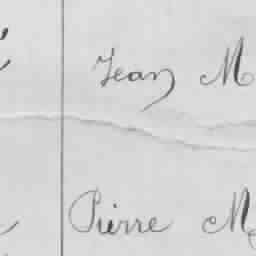 Jean M
Pierre M